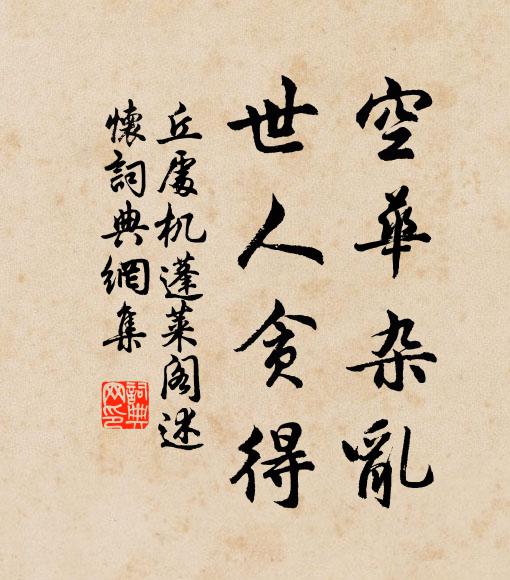 空華杂亂
世人贪得
丘處机蓬莱阁述
懷詞典網集
詞典
网印